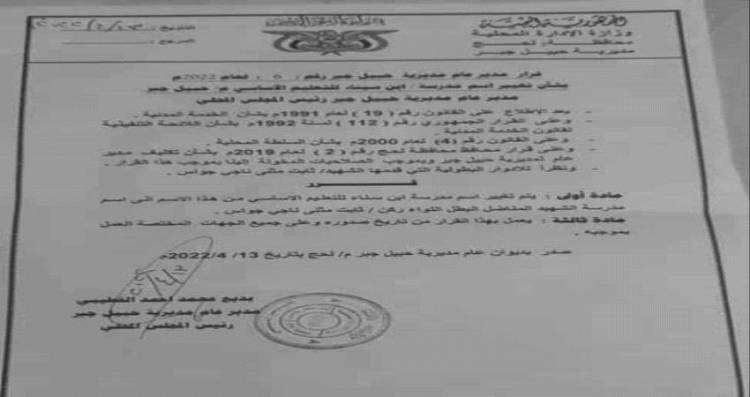 الجمهورية اليمنية
وزارة الإدارة المحلية
محافظة لحج
مديرية حبيل جبر
التاريخ
قرار مدير عام مديرية حبيل جبر رقم ( 6 ) لعام 2022م
بشأن تغيير اسم مدرسة / ابن سيناء للتعليم الأساسي م/ حبيل جبر
مدير عام مديرية حبيل جبر رئيس المجلس المحلي
- بعد الإطلاع على القانون رقم ( 19 ) لعام 1991م بشأن الخدمة المدنية .
- وعلى القرار الجمهوري رقم ( 112 ) لسنة 1992م بشأن اللائحة التنفيذية
لقانون الخدمة المدنية .
- وعلى القانون رقم (4) لعام 2000م بشأن السلطة المحلية .
- وعلى قرار محافظ محافظة لحج رقم ( 2 ) لعام 2019م بشأن تكليف مدير
عام لمديرية حبيل جبر وبموجب الصلاحيات المخولة الينا بموجب هذا القرار .
- ونظراً للأدوار البطولية التي قدمها الشهيد/ ثابت مثنى ناجي جواس .
قـــــرر
مادة أولى : يتم تغيير اسم مدرسة ابن سناء للتعليم الاساسي من هذا الاسم الى اسم
مدرسة الشهيد المناضل البطل اللواء ركن / ثابت مثنى ناجي جواس .
مادة ثالثة : يعمل بهذا القرار من تاريخ صدوره وعلى جميع الجهات المختصة العمل
بموجبه .
صدر بديوان عام مديرية حبيل جبر م/ لحج بتاريخ 13/ 4/ 2022م
بديع محمد أحمد القطيبي
مدير عام مديرية حبيل جبر
رئيس المجلس المحلي